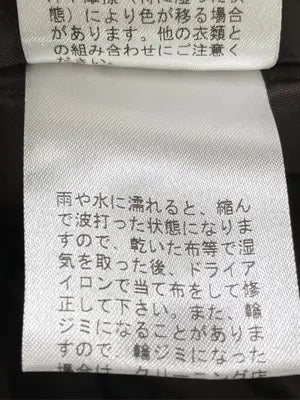 態）により色が移る場合
があります。他の衣類と
の組み合わせにご注意く
ださい。
雨や水に濡れると、縮ん
で波打った状態になりま
すので、乾いた布等で湿
気を取った後、ドライア
イロンで当て布をして修
正して下さい。また、輪
ジミになることがありま
すので、輪ジミになった
場合は、クリーニング店